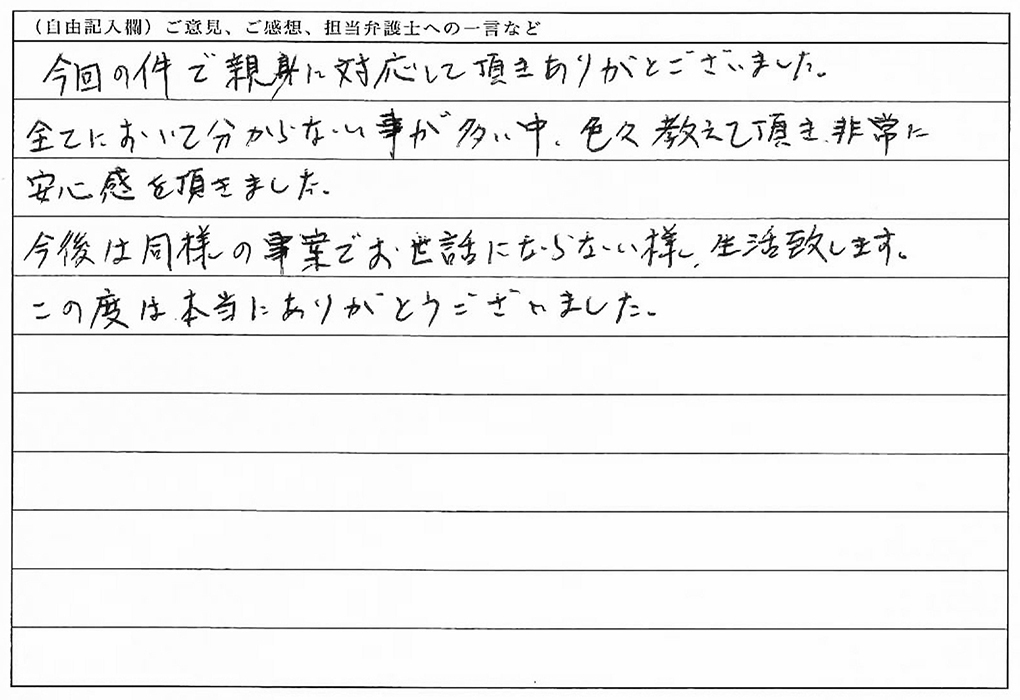 （自由記入欄）ご意見、ご感想、担当弁護士への一言など
今回の件で親身に対応して頂きありがとございました。
全てにおいて分からない事が多い中、色々教えて頂き、非常に
安心感を頂きました。
今後は同様の事案でお世話にならない様、生活致します。
この度は本当にありがとうございました。